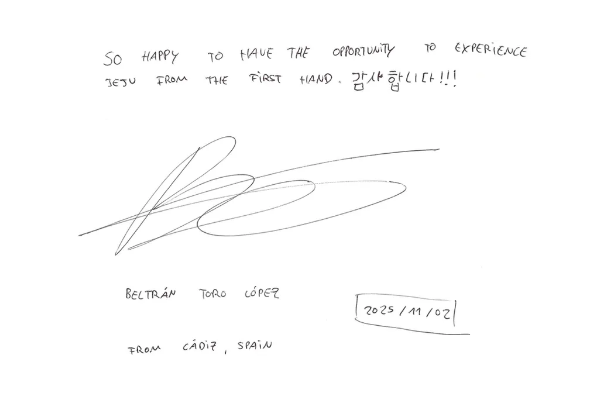 SO HAPPY TO HAVE THE OPPORTUNITY TO EXPERIENCE
JEJU FROM THE FIRST HAND. 감사합니다!!!
BELTRÁN TORO LÓPEZ
2025/11/02
FROM CÁDIZ, SPAIN